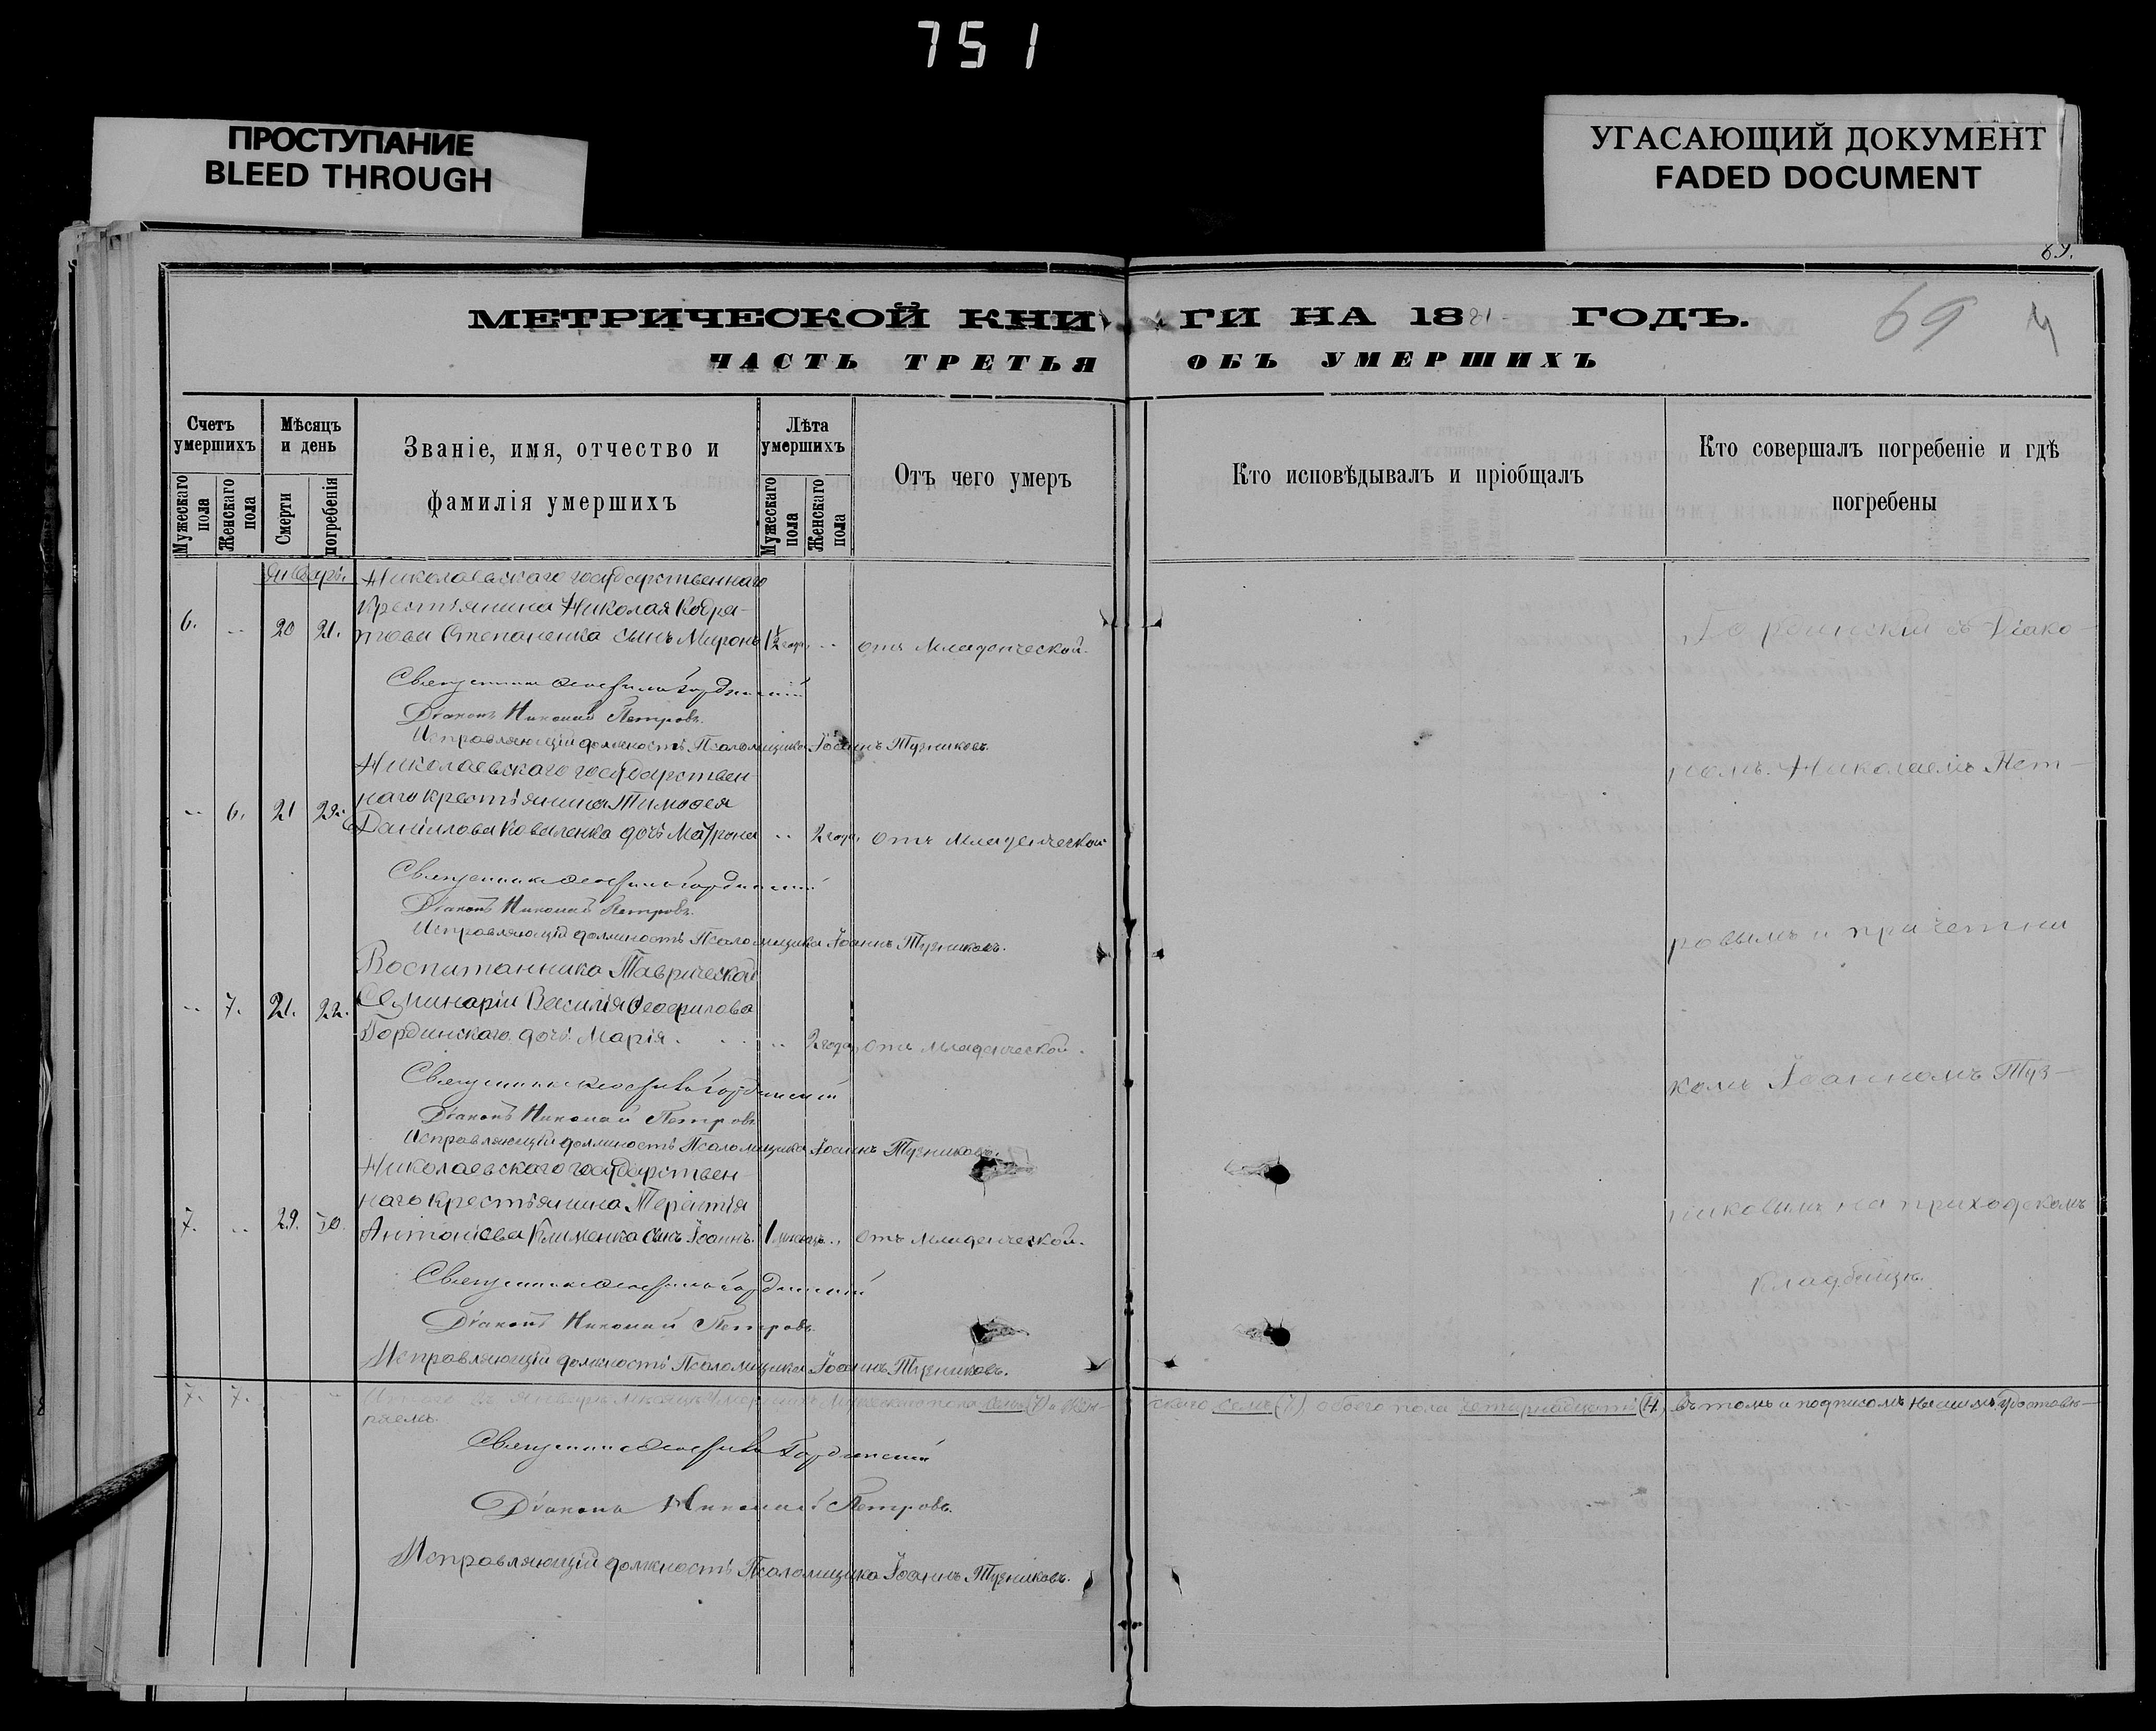 751
ПРОСТУПАНИЕ
BLEED THROUGH
УГАСАЮЩИЙ ДОКУМЕНТ
FADED DOCUMENT
69.
69
МЕТРИЧЕСКОЙ КНИГИ НА 1881 ГОДЪ.
ЧАСТЬ ТРЕТЬЯ ОБЪ УМЕРШИХЪ
Счетъ умершихъ
Мужескаго пола
Женскаго пола
Мѣсяцъ и день
Смерти
погребенія
Званіе, имя, отчество и
фамилія умершихъ
Лѣта умершихъ
Мужескаго пола
Женскаго пола
Отъ чего умеръ
Кто исповѣдывалъ и пріобщалъ
Кто совершалъ погребеніе и гдѣ
погребены
Январь. Николаевскаго государственнаго
крестьянина Николая Кодра-
6. .. 20 21. това Степаненка сынъ Миронъ 1½ года .. отъ младенческой.
Священникъ Ѳеофилъ Гординскій
Діаконъ Николай Петровъ.
Исправляющій должность Псаломщика Іоаннъ Тузниковъ.
Николаевскаго государствен-
наго крестьянина Тимоѳея
.. 6. 21 22. Даніилова Коваленка дочь Матрона .. 2 года отъ младенческой
Священникъ Ѳеофилъ Гординскій
Діаконъ Николай Петровъ.
Исправляющій должность Псаломщика Іоаннъ Тузниковъ.
Воспитанника Таврической
.. 7. 21. 22. Семинаріи Василія Ѳеофилова
Гординскаго дочь Марія. .. 2 года отъ младенческой.
Священникъ Ѳеофилъ Гординскій
Діаконъ Николай Петровъ
Исправляющій должность Псаломщика Іоаннъ Тузниковъ.
Николаевскаго государствен-
наго крестьянина Терентія
7. .. 29. 30. Антоніева Клименка сынъ Іоаннъ. 1 мѣсяцъ .. отъ младенческой.
Священникъ Ѳеофилъ Гординскій
Діаконъ Николай Петровъ
Исправляющій должность Псаломщика Іоаннъ Тузниковъ.
Гординскій съ Діако-
номъ Николаемъ Пет-
ровымъ и причетни
комъ Іоанномъ Туз-
никовымъ на приходскомъ
кладбищѣ.
7. 7. Итого въ Январѣ мѣсяцѣ умершихъ Мужескаго пола семь (7) и Жен-
скаго семь (7) обоего пола четырнадцать (14) въ томъ и подписомъ нашимъ удостовѣ-
ряемъ.
Священникъ Ѳеофилъ Гординскій
Діаконъ Николай Петровъ.
Исправляющій должность Псаломщика Іоаннъ Тузниковъ.